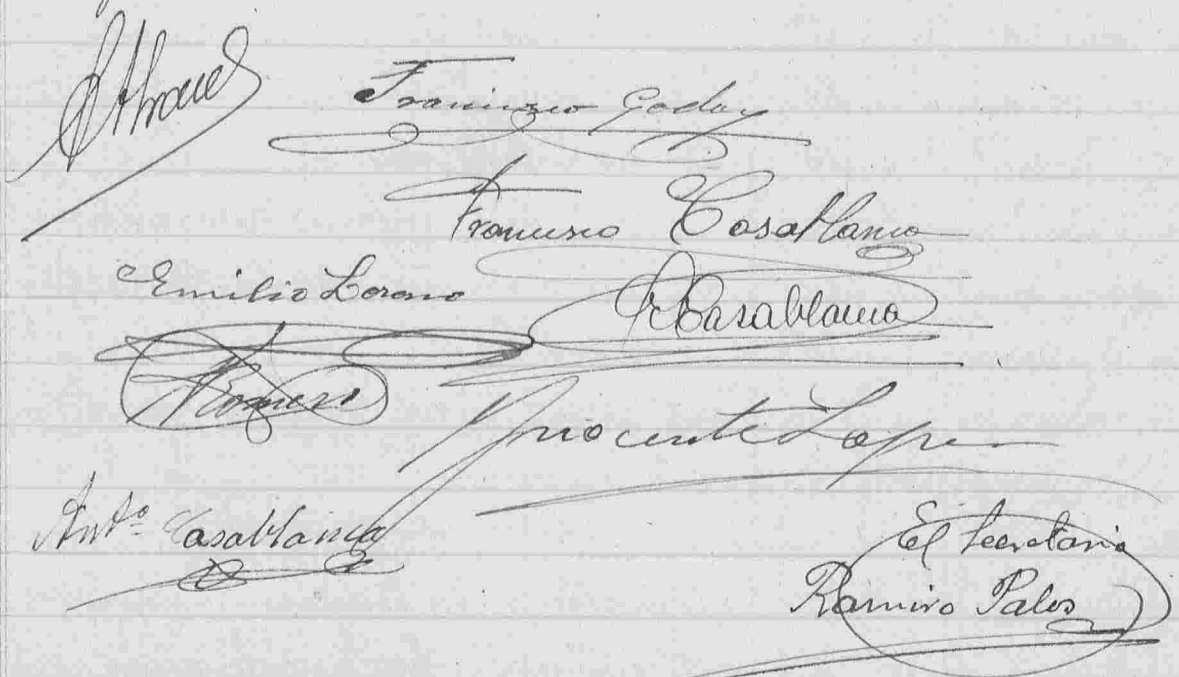 Francisco Godoy
Francisco Casablanca
Emilio Lorano
Casablanca
Romero
Inocente Lopez
Antº Casablanca
El Secretario
Ramiro Pales